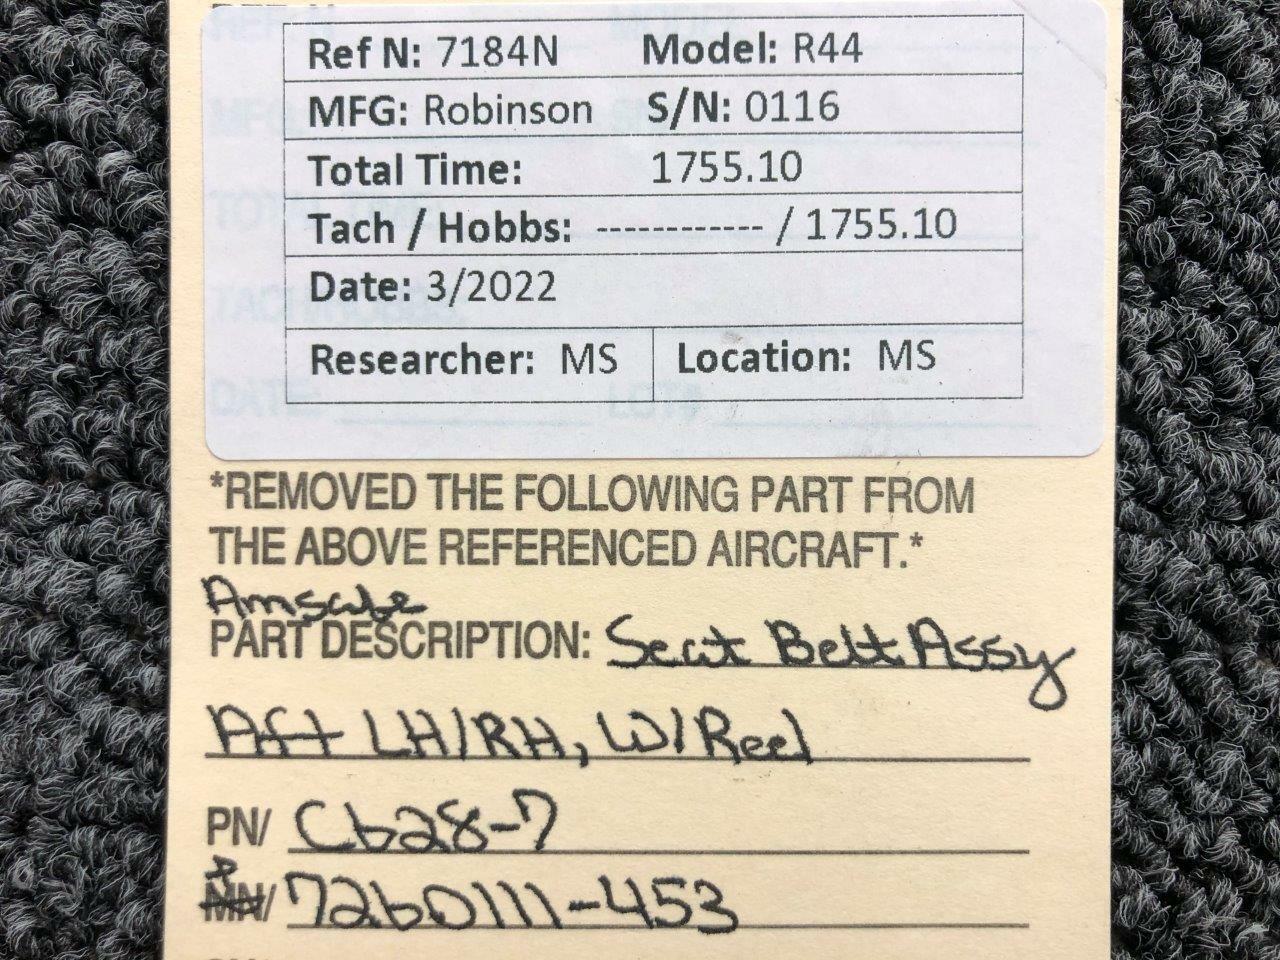 Ref N: 7184N Model: R44
MFG: Robinson S/N: 0116
Total Time: 1755.10
Tach / Hobbs: ------------ / 1755.10
Date: 3/2022
Researcher: MS Location: MS
*REMOVED THE FOLLOWING PART FROM
THE ABOVE REFERENCED AIRCRAFT.*
Amsafe
PART DESCRIPTION: Seat Belt Assy
Aft LH/RH, W/Reel
PN/ C628-7
MN/ 7260111-453